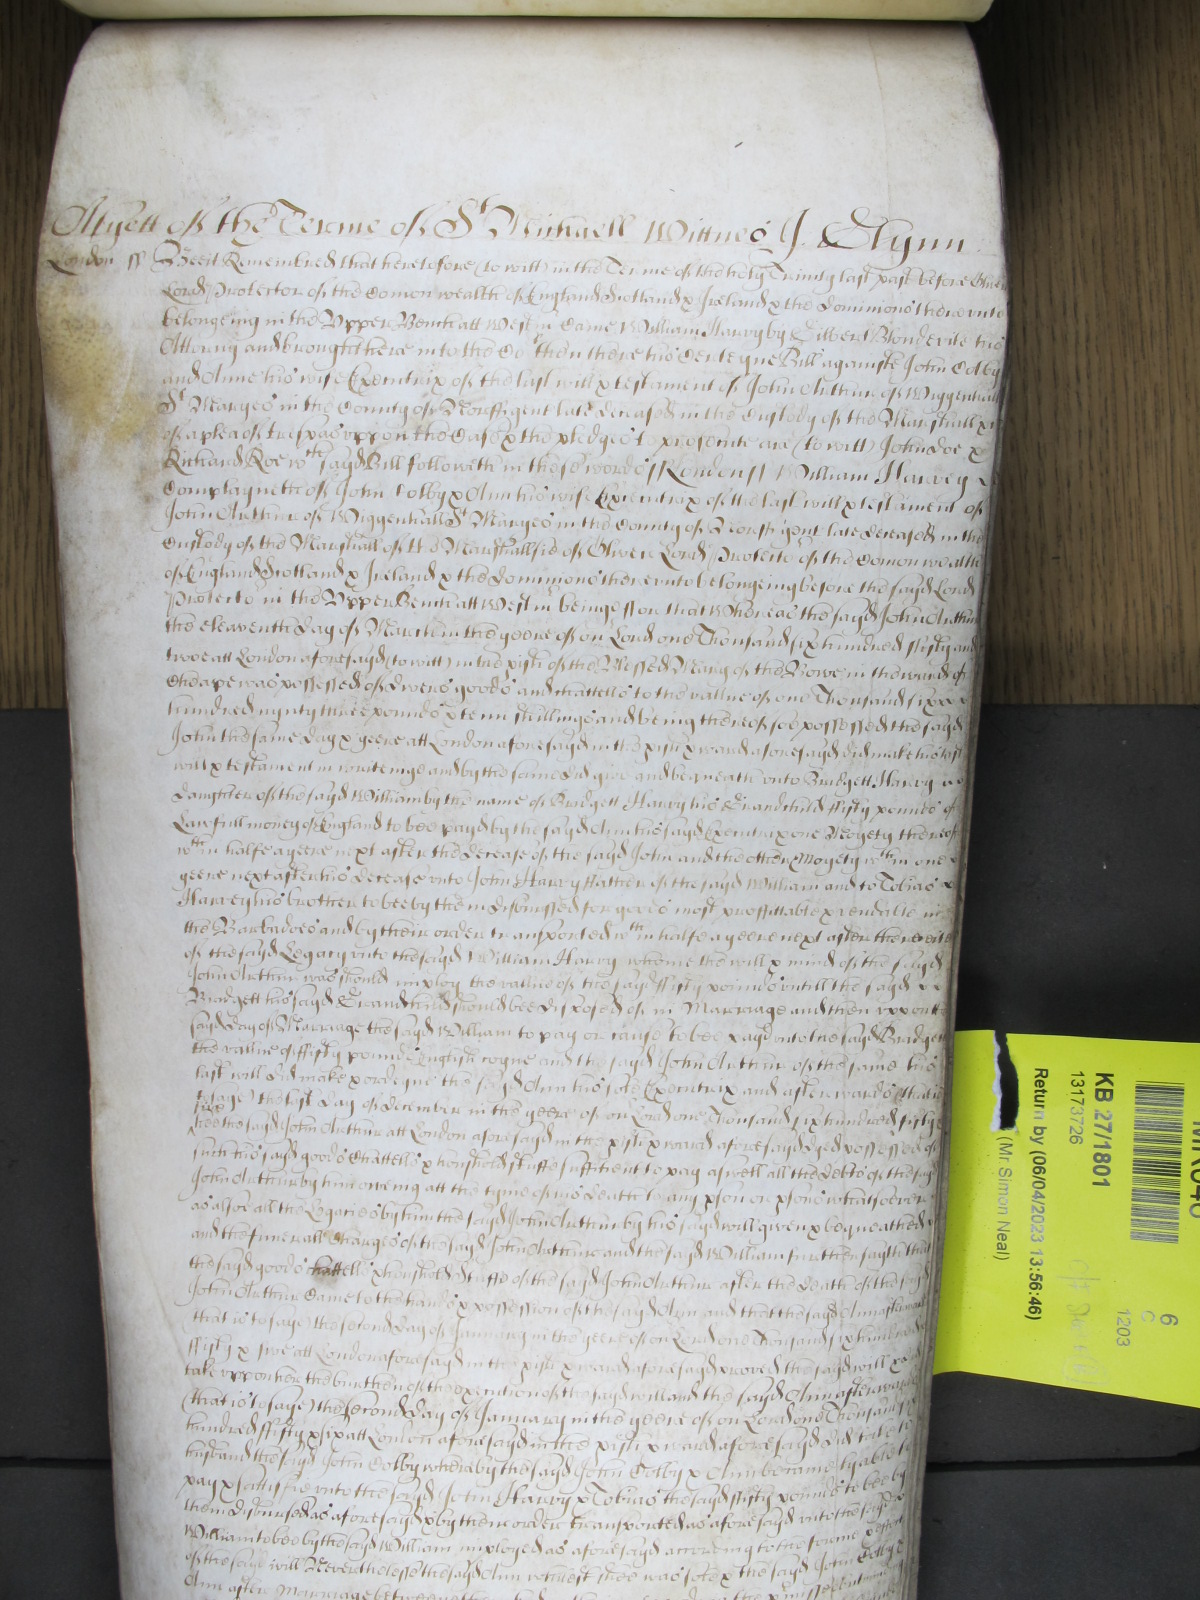 Atyett of the Terme of St Michaell Wittnes J. Glynn
London ss Bee it Remembred that heretofore (to witt) in the Terme of the holy Trinity last past before Oliver
Lord Protector of the Comon wealth of England Scotland & Ireland & the dominions therevnto
belongeing in the Vpper Bench att Westm came William Harvy by Gilbert Blondevile his
Attorny and brought here into the Co then there his certeyne Bill againste John Colby
and Anne his wife Executrix of the last will & testament of John Outtinr of Wiggenhall
St Maryes in the County of Norff gent late deceased in the Custody of the Marshall &c
of a plea of trespas vppon the Case & the pledges to prosecute are (to witt) John doe &
Richard Roe wch sayd Bill followeth in these words London ss William Harvey
Complayneth of John Colby & Ann his wife Executrix of the last will & testament of
John Outtinr of Wiggenhall St Maryes in the County of Norff gent late deceased in the
Custody of the Marshall of the Marshallsie of Oliver Lord Protector of the Comon wealth
of England Scotland & Ireland & the dominions therevnto belongeing before the sayd Lord
Protector in the Vpper Bench att Westm being ffor that Whereas the sayd John Outtinr
the eleaventh day of March in the yeere of our Lord one Thousand six hundred ffifty and
twoe att London aforesayd (to witt) in the pish of the Blessed Mary of the Bowe in the ward of
Cheape was possessed of divers goods and chattells to the vallue of one Thousand six
hundred nynty three pounds & tenn shillings and being thereof soe possessed the sayd
John the same day & yeere att London aforesayd in the pish & ward aforesayd did make his last
will & testament in writeinge and by the same did give and bequeath vnto Bridgett Harvy
daughter of the sayd William by the name of Bridgett Harvy his Grandchild ffifty pounds of
Lawfull money of England to bee payd by the sayd Ann his sayd Executrix one Moyety thereof
wthin halfe a yeere next after the decease of the sayd John and the other Moyety wthin one
yeere next after his decease vnto John Harvy ffather of the sayd William and to Tobias
Harvey his brother to bee by them disbursed for goods most proffittable & vendable in
the Barbadoes and by their order transported wthin halfe a yeere next after the receite
of the sayd Legacy vnto the sayd William Harvy whome the will & mind of the sayd
John Outtinr was should imploy the vallue of the sayd ffifty pounds vntill the sayd
Bridgett his sayd Grandchild should bee disposed of in Marriage and then vppon the
sayd day of Marriage the sayd William to pay or cause to bee payd vnto the sayd Bridgett
the vallue of ffifty pounds English coyne and the sayd John Outtinr of the same his
last will did make & ordeyne the sayd Ann his sole Executrix and afterwards (that is
to saye) the last day of december in the yeere of our Lord one Thousand six hundred fifty
five the sayd John Outtinr att London aforesayd in the pish & ward aforesayd dyed possessed of
such his sayd goods Chattells & houshold stuffe sufficient to pay aswell all the debts of the sayd
John Outtinr by him oweing att the tyme of his death to any pson or psons whatsoever
as alsoe all the Legacies by him the sayd John Outtinr by his sayd will given & bequeathed
and the funerall Charges of the sayd John Outtinr and the sayd William further sayth that
the sayd goods chattells & houshold stuffe of the sayd John Outtinr after the death of the sayd
John Outtinr Came to the hands & possession of the sayd Ann and that the sayd Ann afterwards
that is to saye the second day of January in the yeere of our Lord one Thousand six hundred
ffifty & five att London aforesayd in the pish & ward aforesayd proved the sayd will &
take vppon her the burthen of the execution of the sayd will and the sayd Ann afterwards
(that is to saye) the second day of January in the yeere of our Lord one Thousand six
hundred ffifty & six att London aforesayd in the pish & ward aforesayd did take to
husband the sayd John Colby whereby the sayd John Colby & Ann became lyable to
pay & sattisfie vnto the sayd John Harvy & Tobias the sayd ffifty pounds to bee by
them disbursed as aforesayd & by their order transported as aforesayd vnto the sayd
William to bee by the sayd William imployed as aforesayd according to the forme & effect
of the sayd will Neverthelesse the sayd Ann whilest shee was sole & the sayd John Colby &
Ann after Marriage betweene them
KB 27/1801
13173726
Return by (06/04/2023 13:56:46)
(Mr Simon Neal)
6
C
1203